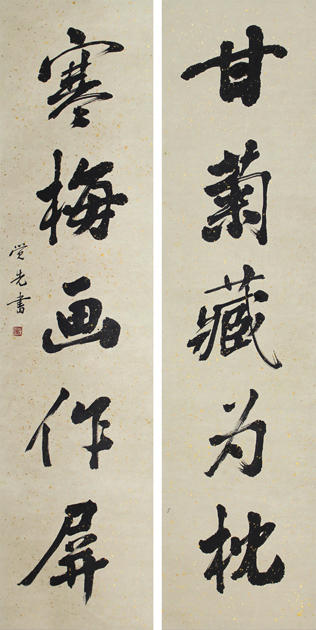 甘菊藏为枕
寒梅画作屏
觉先书